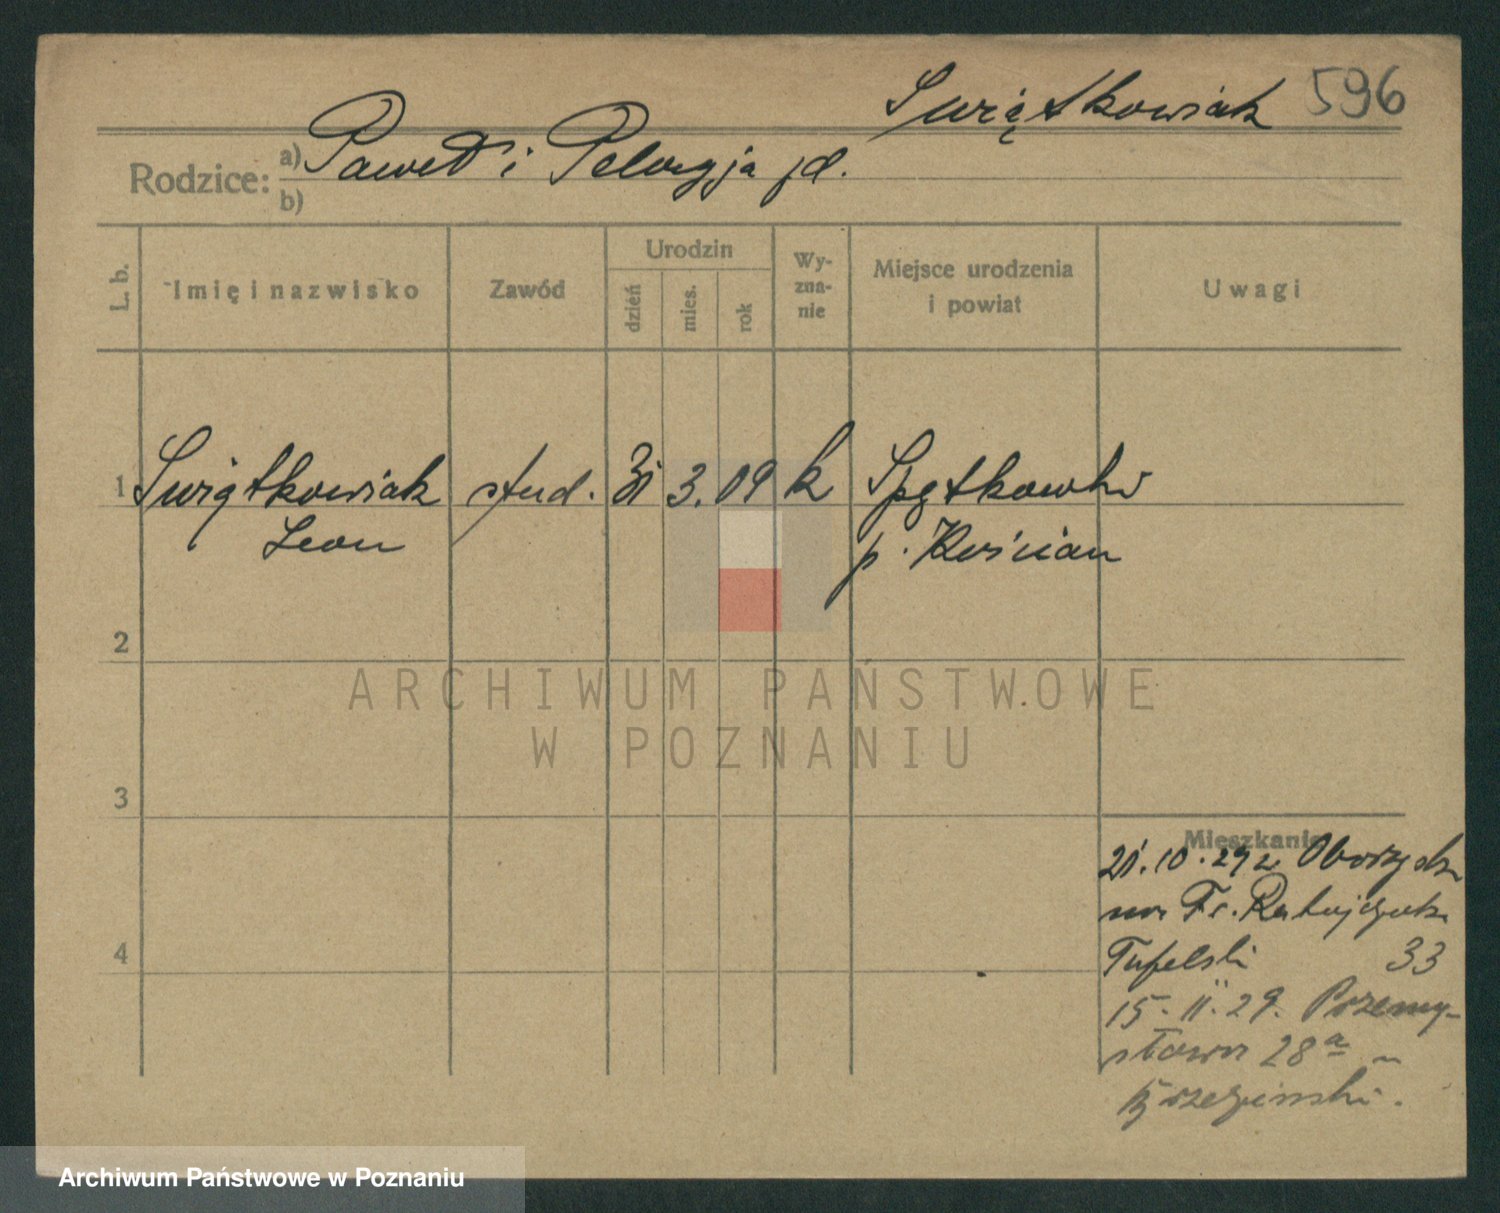 Swiątkowiak 596
Rodzice: a) Paweł i Pelagja jd.
b)
L. b.
Imię i nazwisko
Zawód
Urodzin
dzień
mies.
rok
Wy-
zna-
nie
Miejsce urodzenia
i powiat
Uwagi
1 Swiątkowiak stud. 31 3. 09 k
Leon p. Kościan
2
ARCHIWUM PAŃSTWOWE
W POZNANIU
3
Mieszkanie
21.10.29 z
Fr. Ratajczaka
4
33
15.11.29. Przemy-
słowa 28a
Archiwum Państwowe w Poznaniu